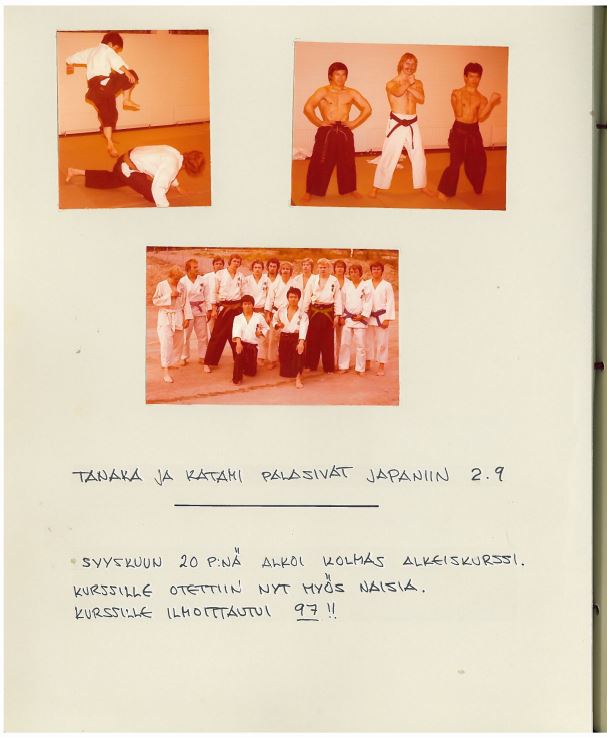 TANAKA JA KATAMI PALASIVAT JAPANIIN 2.9
SYYSKUUN 20 P:NÄ ALKOI KOLMAS ALKEISKURSSI.
KURSSILLE OTETTIIN NYT MYÖS NAISIA.
KURSSILLE ILMOITTAUTUI 97 !!